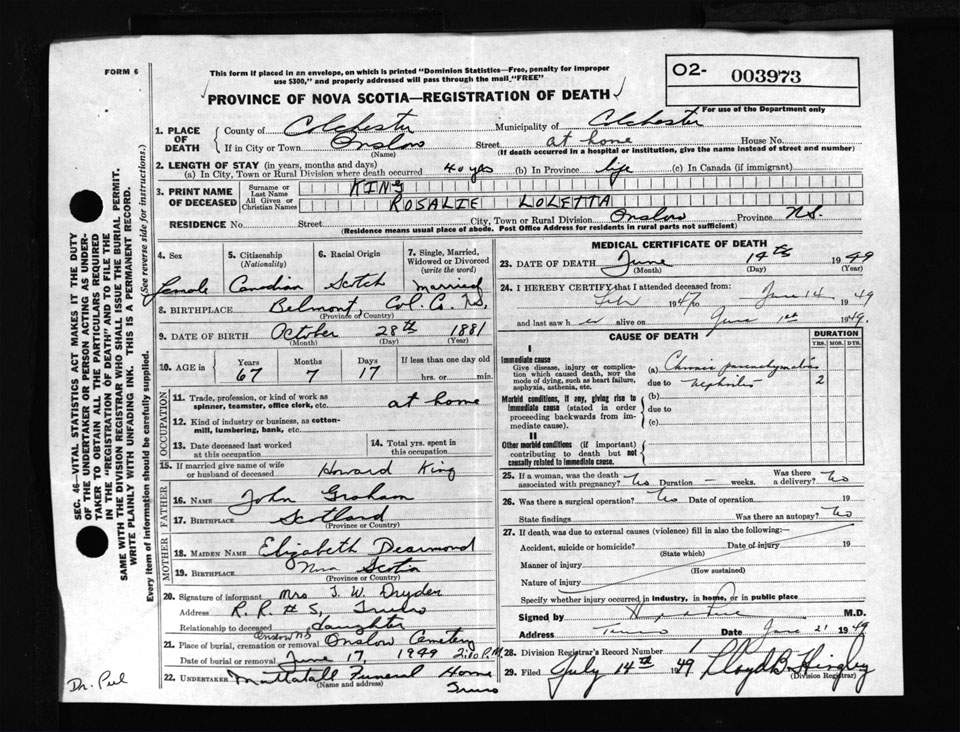 FORM 6
This form if placed in an envelope, on which is printed "Dominion Statistics—Free, penalty for improper
use $300," and properly addressed will pass through the mail "FREE"
PROVINCE OF NOVA SCOTIA—REGISTRATION OF DEATH
O2- 003973
For use of the Department only
1. PLACE OF DEATH
County of Colchester Municipality of Colchester
If in City or Town Onslow Street at home House No.
(Name) (If death occurred in a hospital or institution, give the name instead of street and number)
2. LENGTH OF STAY (in years, months and days)
(a) In City, Town or Rural Division where death occurred 40 yrs (b) In Province life (c) In Canada (if immigrant)
3. PRINT NAME OF DECEASED
Surname or Last Name KING
All Given or Christian Names ROSALIE LOLETTA
RESIDENCE No. Street City, Town or Rural Division Onslow Province N.S.
(Residence means usual place of abode. Post Office Address for residents in rural parts not sufficient)
4. Sex
female
5. Citizenship (Nationality)
Canadian
6. Racial Origin
Scotch
7. Single, Married, Widowed or Divorced (write the word)
Married
8. BIRTHPLACE Belmont, Col. Co. N.S.
(Province or Country)
9. DATE OF BIRTH October 28th 1881
(Month) (Day) (Year)
10. AGE in Years Months Days If less than one day old
67 7 17 hrs. or min.
OCCUPATION
11. Trade, profession, or kind of work as
spinner, teamster, office clerk, etc. at home
12. Kind of industry or business, as cotton-
mill, lumbering, bank, etc.
13. Date deceased last worked
at this occupation
14. Total yrs. spent in
this occupation
15. If married give name of wife
or husband of deceased Howard King
FATHER
16. NAME John Graham
17. BIRTHPLACE Scotland
(Province or Country)
MOTHER
18. MAIDEN NAME Elizabeth Dearmond
19. BIRTHPLACE Nova Scotia
(Province or Country)
20. Signature of informant Mrs J. W. Dryden
Address R. R. # 5, Truro
Relationship to deceased daughter
21. Place of burial, cremation or removal Onslow NS Onslow Cemetery
Date of burial or removal June 17, 1949 2:30 P.M.
22. UNDERTAKER Mattatall Funeral Home
(Name and address) Truro
MEDICAL CERTIFICATE OF DEATH
23. DATE OF DEATH June 14th 1949
(Month) (Day) (Year)
24. I HEREBY CERTIFY that I attended deceased from:
Feb 1947 to June 14 1949
and last saw her alive on June 1949.
CAUSE OF DEATH
DURATION
YRS. MOS. DYS.
I
Immediate cause
Give disease, injury or complica-
tion which caused death, not the
mode of dying, such as heart failure,
asphyxia, asthenia, etc.
(a) Chronic parenchymatous
due to Nephritis 2
Morbid conditions, if any, giving rise to
immediate cause (stated in order
proceeding backwards from im-
mediate cause).
(b)
due to
(c)
II
Other morbid conditions (if important)
contributing to death but not
causally related to immediate cause.
25. If a woman, was the death
associated with pregnancy? No Duration — weeks. Was there a delivery? No
26. Was there a surgical operation? No Date of operation 19
State findings Was there an autopsy? No
27. If death was due to external causes (violence) fill in also the following:—
Accident, suicide or homicide? Date of injury 19
(State which)
Manner of injury
(How sustained)
Nature of injury
Specify whether injury occurred in industry, in home, or in public place
Signed by M.D.
Address Truro Date June 21 1949
28. Division Registrar's Record Number 1
29. Filed July 14th 1949 Lloyd B.
(Division Registrar)
SEC. 46—VITAL STATISTICS ACT MAKES IT THE DUTY
OF THE UNDERTAKER OR PERSON ACTING AS UNDER-
TAKER TO OBTAIN ALL THE PARTICULARS REQUIRED
IN THE "REGISTRATION OF DEATH" AND TO FILE THE
SAME WITH THE DIVISION REGISTRAR WHO SHALL ISSUE THE BURIAL PERMIT.
WRITE PLAINLY WITH UNFADING INK. THIS IS A PERMANENT RECORD.
Every item of information should be carefully supplied. (See reverse side for instructions.)
Dr. Peel